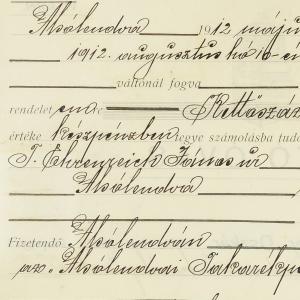 Alsólendva 1912 május
1912. augusztus hó 10-én
váltónál fogva
rendelet em re Kettőszáz
értéke készpénzben tegye számolásba tud
T. Ehrenreich János úr
Alsólendva
Fizetendő Alsólendván
az Alsólendvai Takarékp